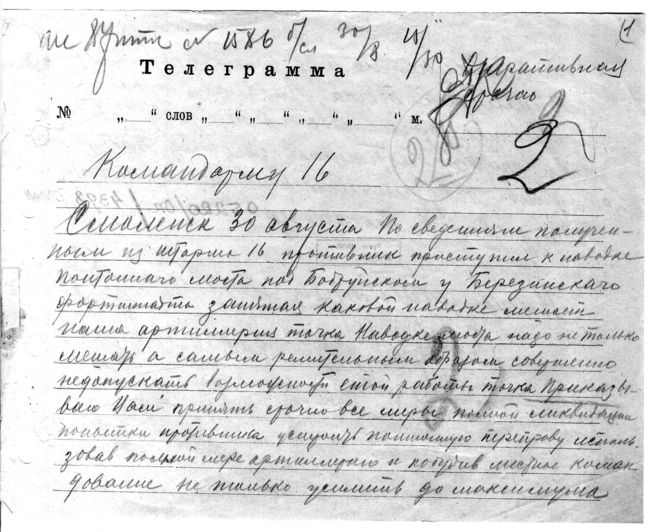 1
№ 1586 30/8
Оперативная
Срочно
Телеграмма
№ „ “ слов „ “ „ “ „ “ м.
2
Командарму 16
Смоленск 30 августа По сведениям получен-
ным из штарма 16 противник приступил к наводке
понтонного моста под Бобруйском у Березинского
форштадта занятая каковой наводке мешает
наша артиллерия точка Наводке моста надо не только
мешать а самым решительным образом совершенно
недопускать возможности этой работы точка Приказы-
ваю Вам принять срочно все меры полной ликвидации
попытки противника устроить понтонную переправу исполь-
зовав полной мере артиллерию и побудив местное коман-
дование не только усилить до максимума